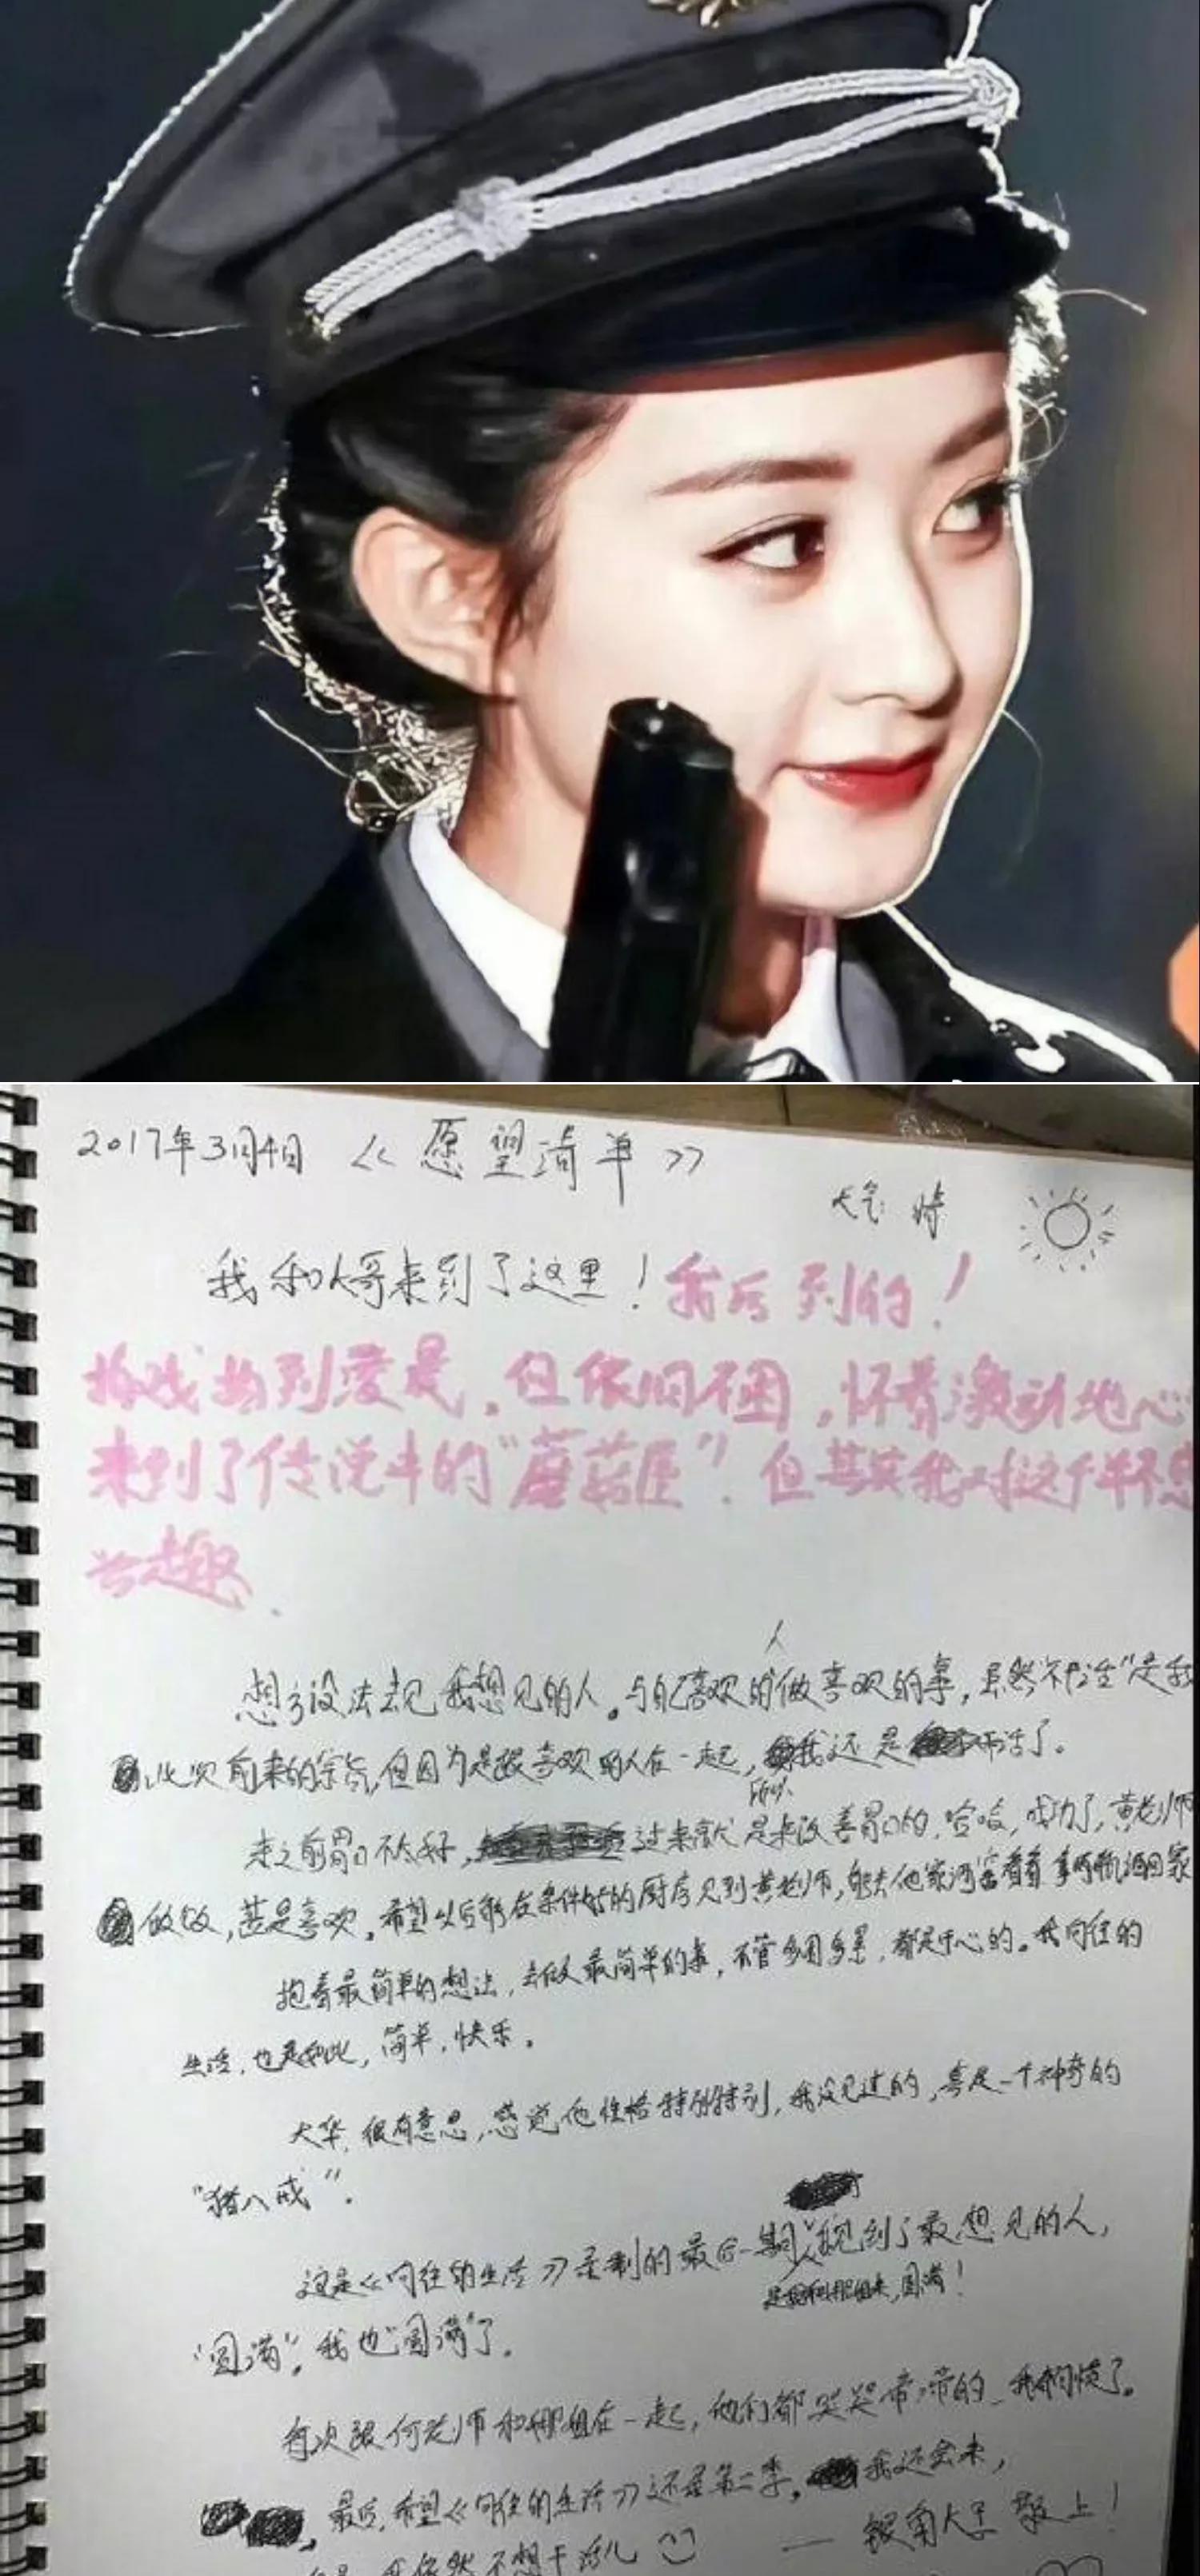 2017年3月4日 《愿望清单》
天气 晴
我和大哥来到了这里！我后到的！
拍戏拍到凌晨，但依旧不困，怀着激动地心
来到了传说中的“蘑菇屋”，但其实我对这个并不感
兴趣.
人
想方设法去见我想见的人。与自己喜欢的做喜欢的事，虽然“干活”是我
此次前来的宗旨，但因为是跟喜欢的人在一起，我还是干活了。
所以
来之前胃口不太好，过来就是来改善胃口的，哈哈，成功了，黄老师
做饭，甚是喜欢，希望以后能在条件好的厨房见到黄老师，能去他家酒窖看看拿两瓶酒回家
抱着最简单的想法，去做最简单的事，不管多困多累，都是开心的。我向往的
生活，也是如此，简单，快乐。
大华，很有意思，感觉他性格特别特别，我没见过的，真是一个神奇的
“猪八戒”.
这是《向往的生活》录制的最后一期，我见到了最想见的人，
圆满！
“圆满”，我也“圆满”了。
每次跟何老师和娜姐在一起，他们都哭哭啼啼的
最后，希望《向往的生活》还有第二季，我还会来，
我依然不想干活儿
—— 银角大王 敬上！